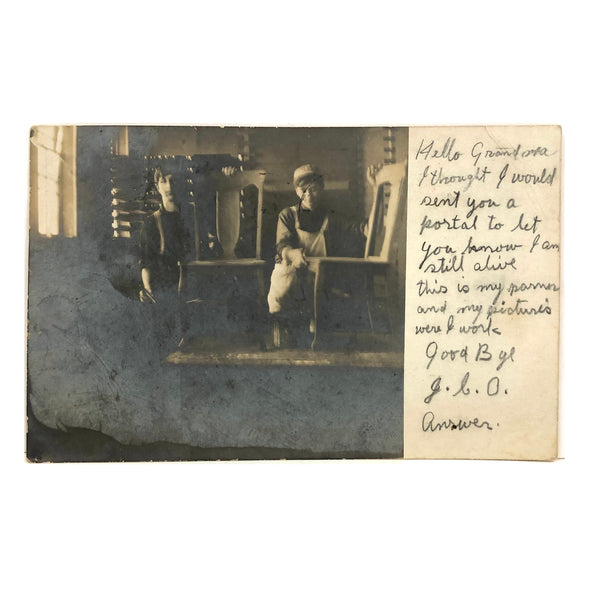 Hello Grandma
I thought I would
sent you a
portal to let
you know I am
still alive
this is my parner
and my picturis
were I work
Good Bye
J. C. O.
Answer.